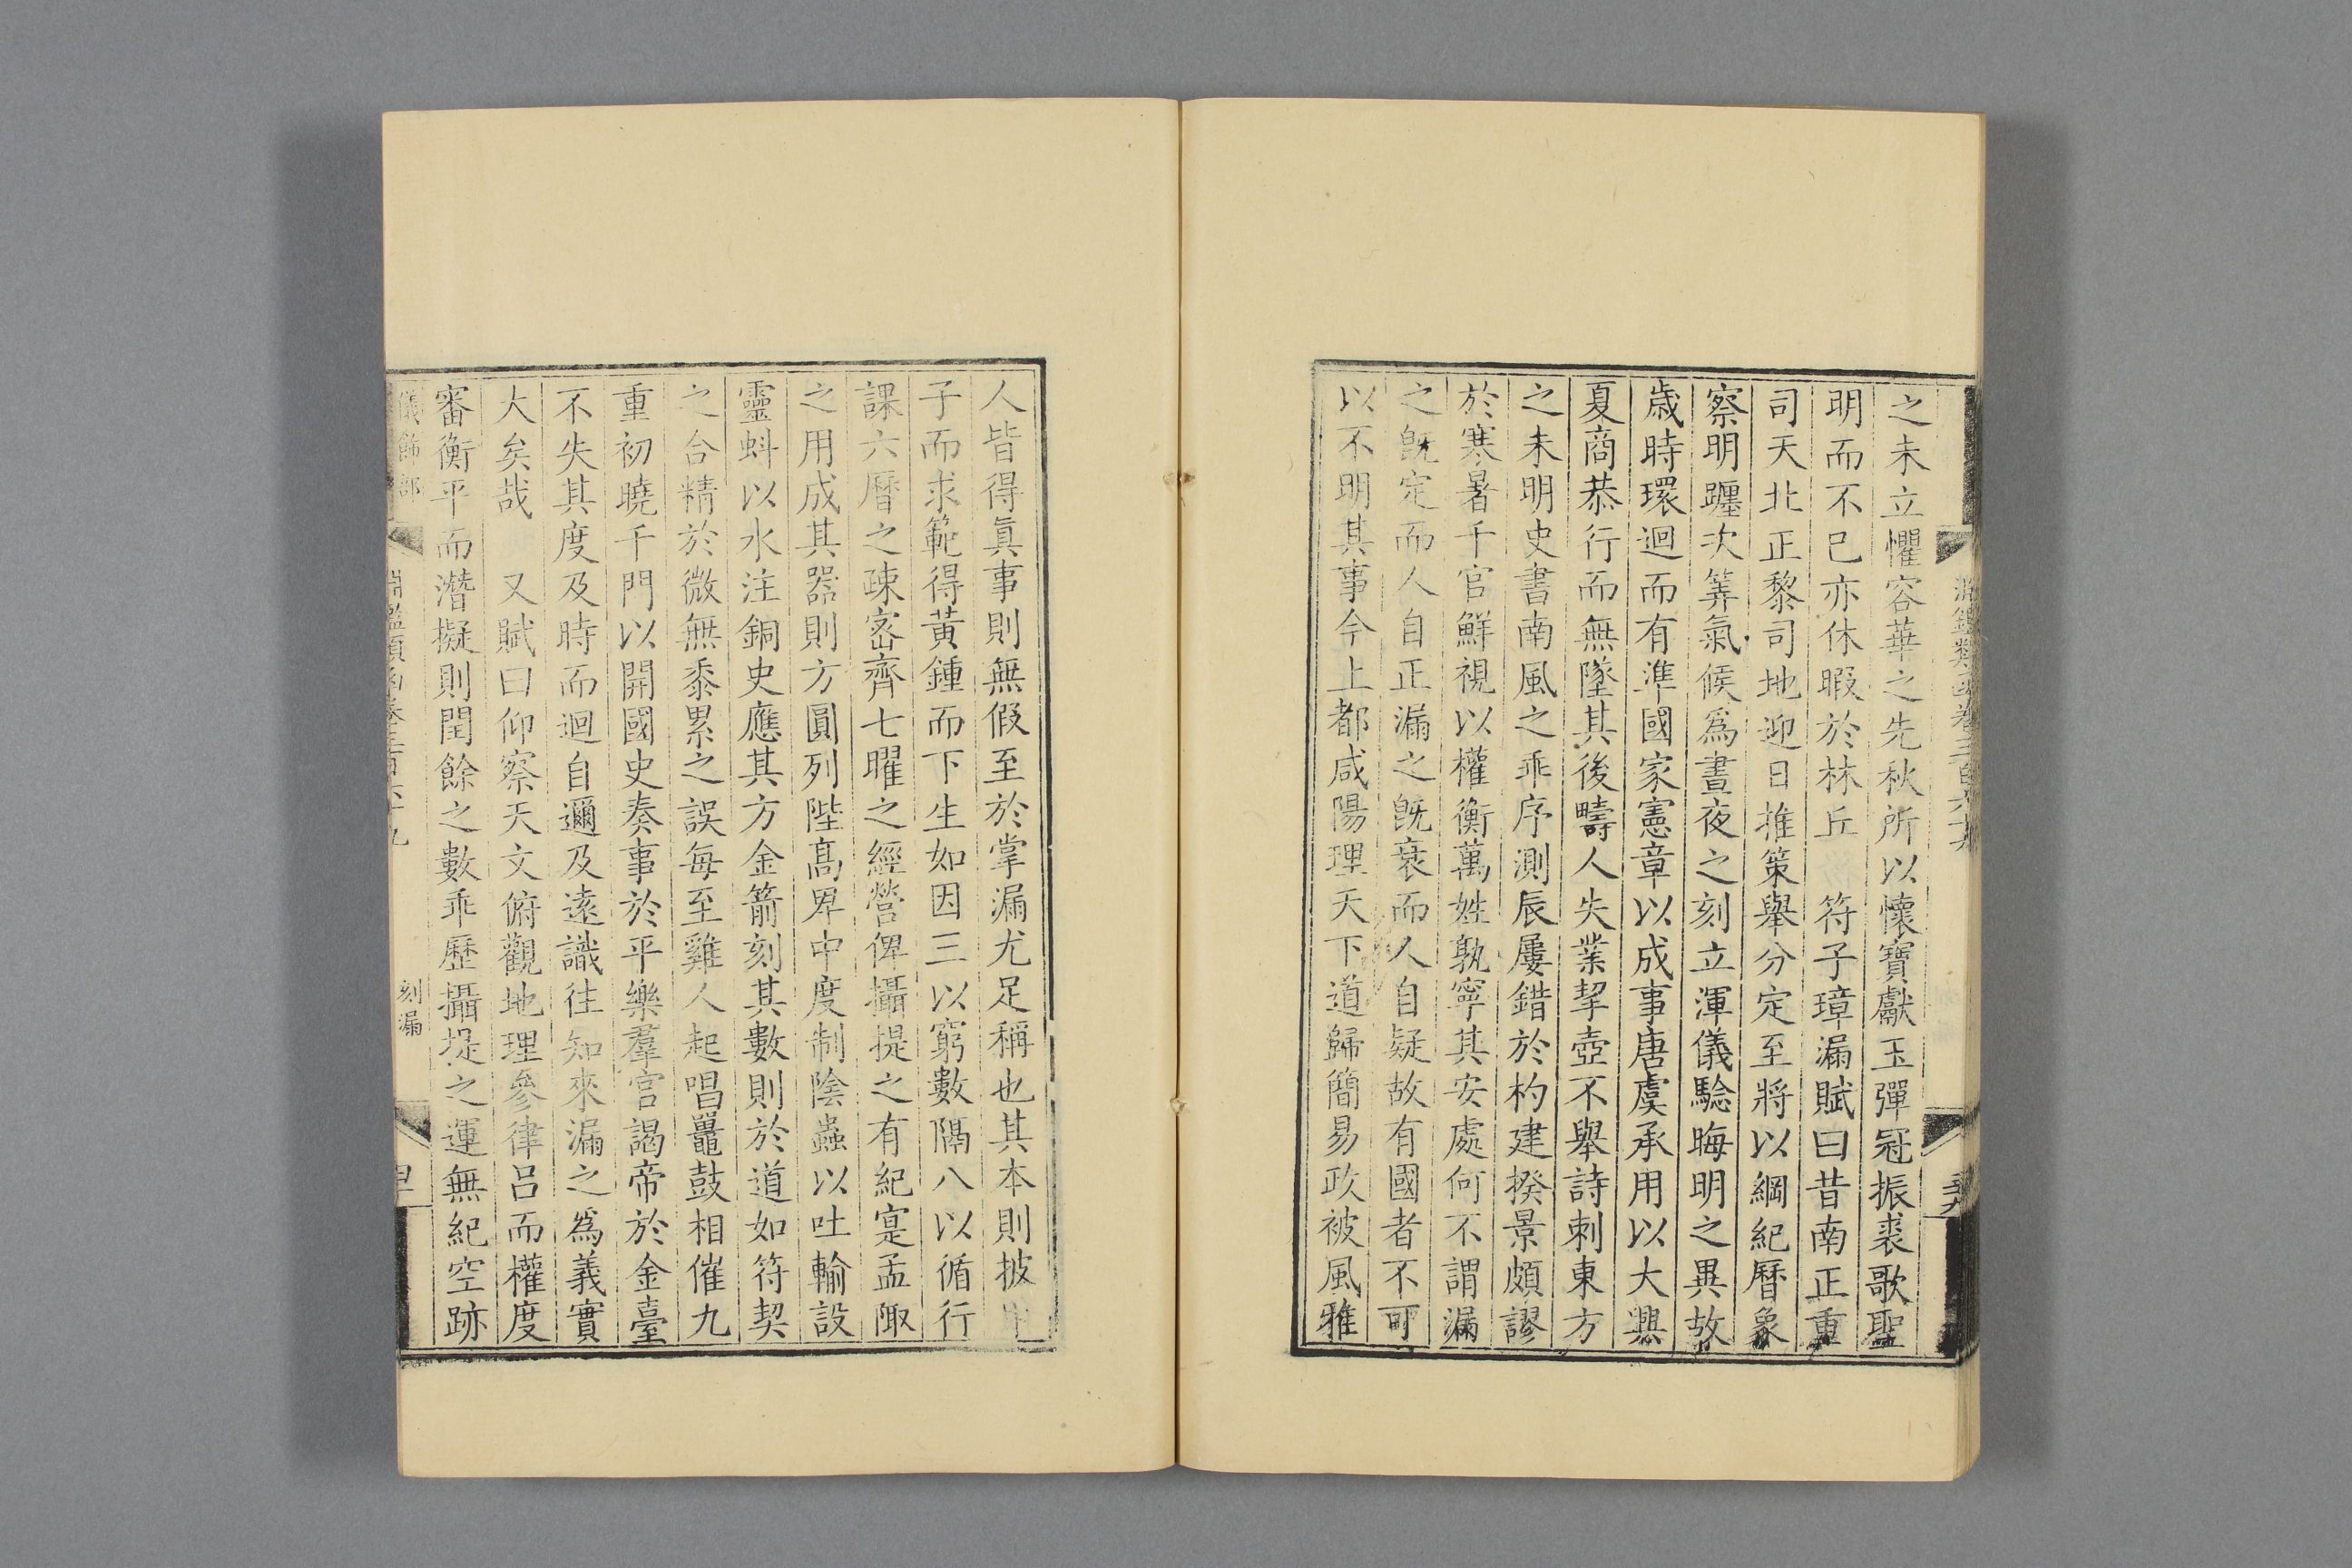 之未立懼容華之先秋所以懷寶獻玉彈冠振裘歌聖
明而不已亦休暇於林丘 符子璋漏賦曰昔南正重
司天北正黎司地迎日推策舉分定至將以綱紀曆象
察明躔次筭氣候爲晝夜之刻立渾儀驗晦明之異故
歲時環迴而有準國家憲章以成事唐虞承用以大興
夏商恭行而無墜其後疇人失業挈壺不舉詩刺東方
之未明史書南風之乖序測辰屢錯於杓建揆景頗謬
於寒暑千官鮮視以權衡萬姓孰寧其安處何不謂漏
之旣定而人自正漏之旣衰而人自疑故有國者不可
以不明其事今上都咸陽理天下道歸簡易政被風雅
人皆得眞事則無假至於掌漏尤足稱也其本則披
子而求範得黃鍾而下生如因三以窮數隔八以循行
課六曆之疎密齊七曜之經營俾攝提之有紀寔孟陬
之用成其器則方圓列陛高卑中度制陰蟲以吐輸設
靈蚪以水注銅史應其方金箭刻其數則於道如符契
之合精於微無黍累之誤每至雞人起唱鼉鼓相催九
重初曉千門以開國史奏事於平樂羣官謁帝於金臺
不失其度及時而迴自邇及遠識往知來漏之爲義實
大矣哉 又賦曰仰察天文俯觀地理參律呂而權度
審衡平而潛擬則閏餘之數乖歷攝提之運無紀空跡
儀飾部 淵鑑類函卷三百六十九 刻漏